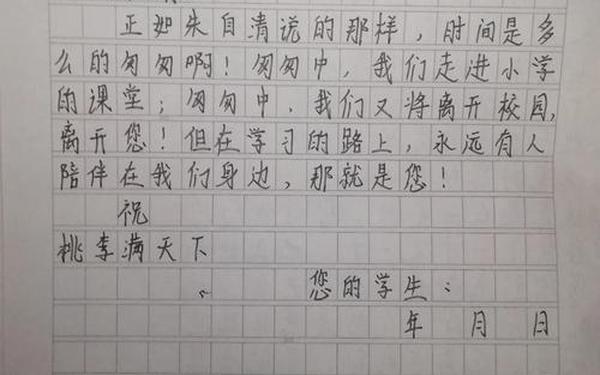 正如朱自清说的那样，时间是多
么的匆匆啊！匆匆中，我们走进小学
的课堂；匆匆中，我们又将离开校园，
离开您！但在学习的路上，永远有人
陪伴在我们身边，那就是您！
祝
桃李满天下
您的学生：
年 月 日